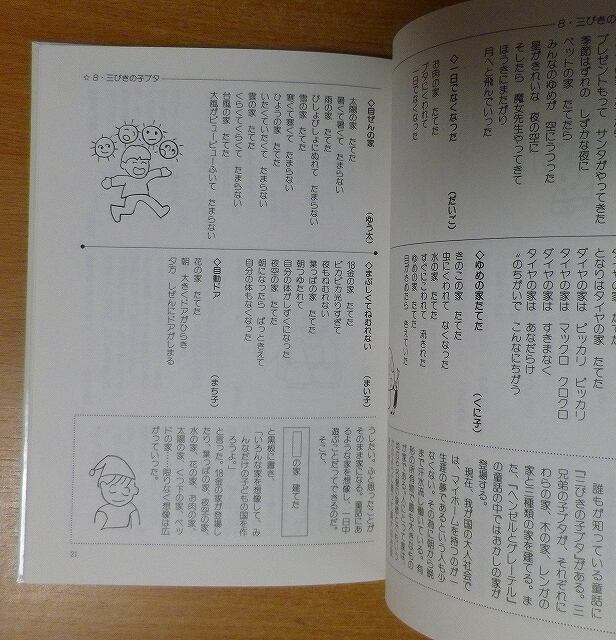 8・三びきの
プレゼントもって サンタがやってきた
季節はずれの しずかな夜に
ペットの家 たてたら
みんなのゆめが 空にうつった
星がきれいな 夜の空に
そしたら 魔女先生やってきて
ほうきにまたがり
月へと飛んでいった
◇一日でなくなった
(だいご)
お肉の家 たてた
ブタにくわれて
一日でなくなった
となりはダイヤの家 たてた
ダイヤの家は ピッカリ ピッカリ
ダイヤの家は マックロ クロクロ
ダイヤの家は すきまなく
ダイヤの家は あなだらけ
〃のちがいで こんなにちがう
◇ゆめの家たてた
(くに子)
きのこの家 たてた
虫にくわれて なくなった
水の家 たてた
すぐにこわれて 流された
ゆめの家 たてた
目がさめたら きえていた
誰もが知っている童話に
『三びきの子ブタ』がある。三
兄弟の子ブタが、それぞれに
わらの家、木の家、レンガの
家と三種類の家を建てる。ま
た、『ヘンゼルとグレーテル』
の童話の中ではおかしの家が
登場する。
現在、我が国の大人社会で
は、マイホームを持つのが一
生涯の夢であるという人も少
なくない。その為に朝から晩
まで汗水流して働いている。有
☆8・三びきの子ブタ
◇自ぜんの家
(ゆう太)
太陽の家 たてた
暑くて暑くて たまらない
雨の家 たてた
びしょびしょにぬれて たまらない
雪の家 たてた
寒くて寒くて たまらない
ひょうの家 たてた
いたくていたくて たまらない
雲の家 たてた
くらくてくらくて たまらない
台風の家 たてた
大風がビュービューふいて たまらない
◇まぶしくてねむれない
(まい子)
18金の家 たてた
ピカピカ光りすぎて
夜もねむれない
葉っぱの家 たてた
朝つゆたれて
自分の体がしずくになった
夜空の家 たてた
朝になったら ぱっときえて
自分の体もなくなった
◇自動ドア
(まち子)
花の家 たてた
朝 大きくドアがひらき
夕方 しぜんにドアがしまる
うしたい。ふと思ったことが
そのまま家になる。童話にあ
るような家を想像し、一日中
遊ぶことだってできるのだ。
そこで、
の家 建てた
と黒板に書き、
「いろんな家を想像して、み
んなだけの子どもの国を作
ろうよ。」
と言った。18金の家が登場し
たり、葉っぱの家、夜空の家、
水の家、花の家、お肉の家、
太陽の家、くつ下の家、ペッ
トの家……限りなく想像は広
がっていった。
21